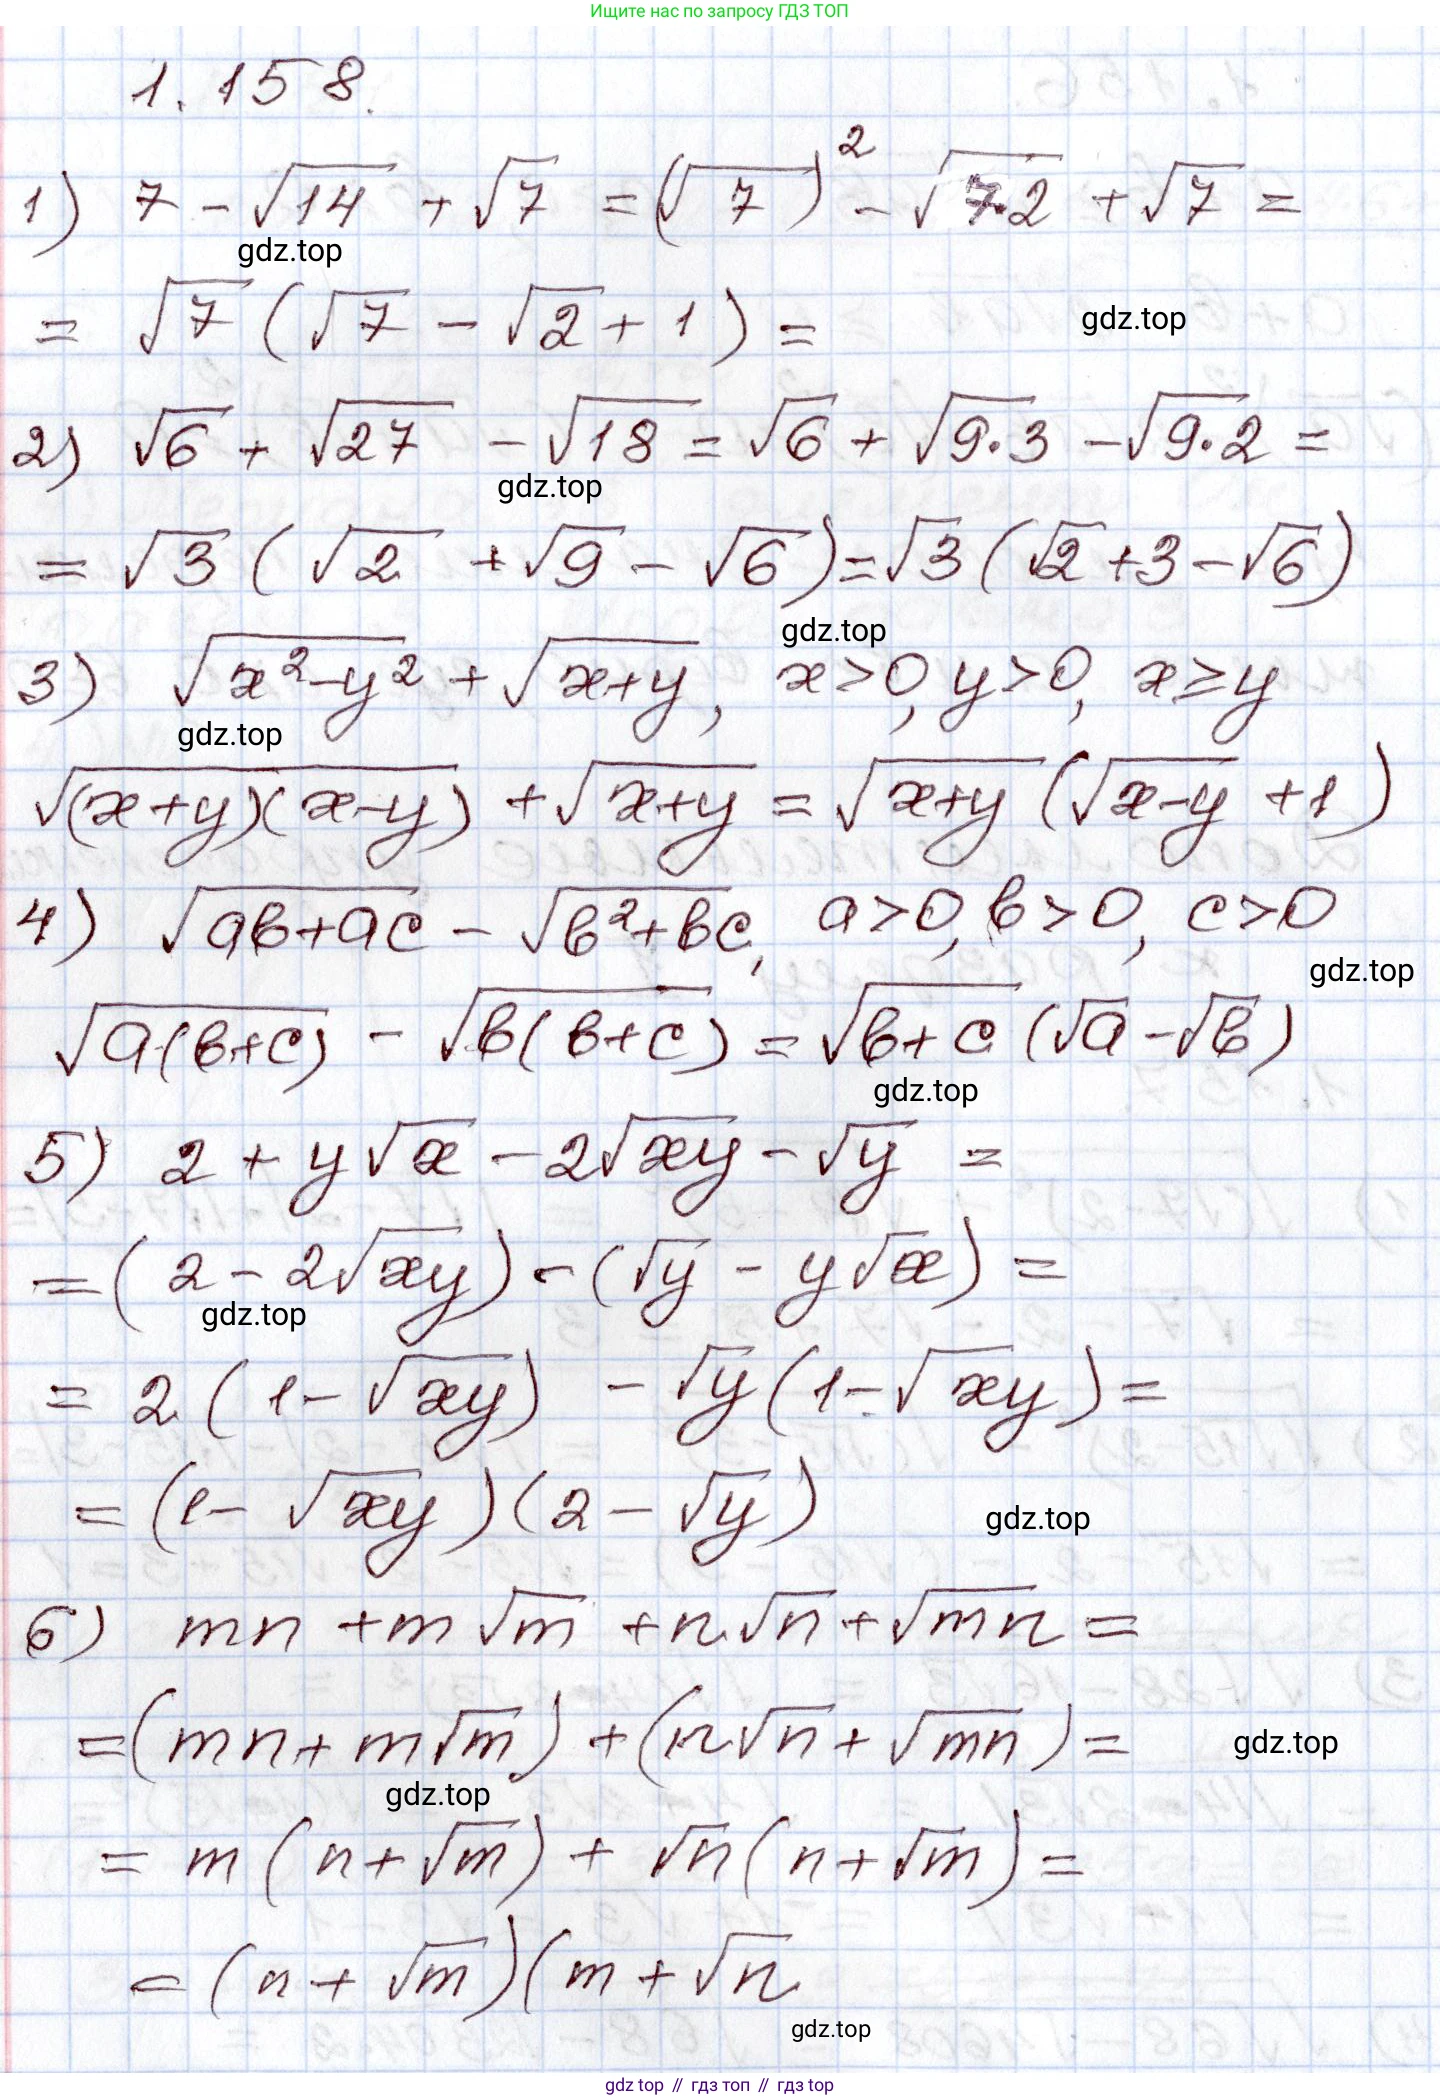 Ищите нас по запросу ГДЗ ТОП
1.158.
1) 7 - √14 + √7 = (√7)² - √7·2 + √7 =
gdz.top
= √7 (√7 - √2 + 1) =
gdz.top
2) √6 + √27 - √18 = √6 + √9·3 - √9·2 =
gdz.top
= √3 (√2 + √9 - √6) = √3 (√2 + 3 - √6)
gdz.top
3) √x²-y² + √x+y, x>0, y>0, x≥y
gdz.top
√(x+y)(x-y) + √x+y = √x+y (√x-y + 1)
4) √ab+ac - √b²+bc, a>0, b>0, c>0
gdz.top
√a(b+c) - √b(b+c) = √b+c (√a - √b)
gdz.top
5) 2 + y√x - 2√xy - √y =
= (2 - 2√xy) - (√y - y√x) =
gdz.top
= 2 (1 - √xy) - √y (1 - √xy) =
= (1 - √xy)(2 - √y)
gdz.top
6) mn + m√m + n√n + √mn =
= (mn + m√m) + (n√n + √mn) =
gdz.top
gdz.top
= m (n + √m) + √n (n + √m) =
= (n + √m)(m + √n
gdz.top
gdz top // гдз топ // гдз top